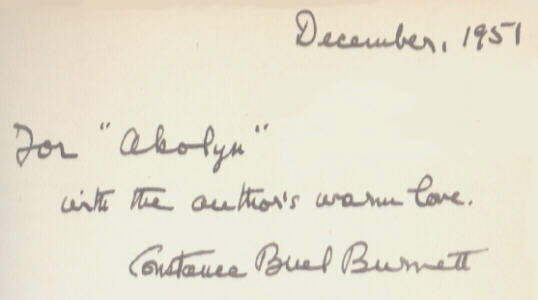 December, 1951
For "Akolyn"
with the author's warm love.
Constance Buel Burnett